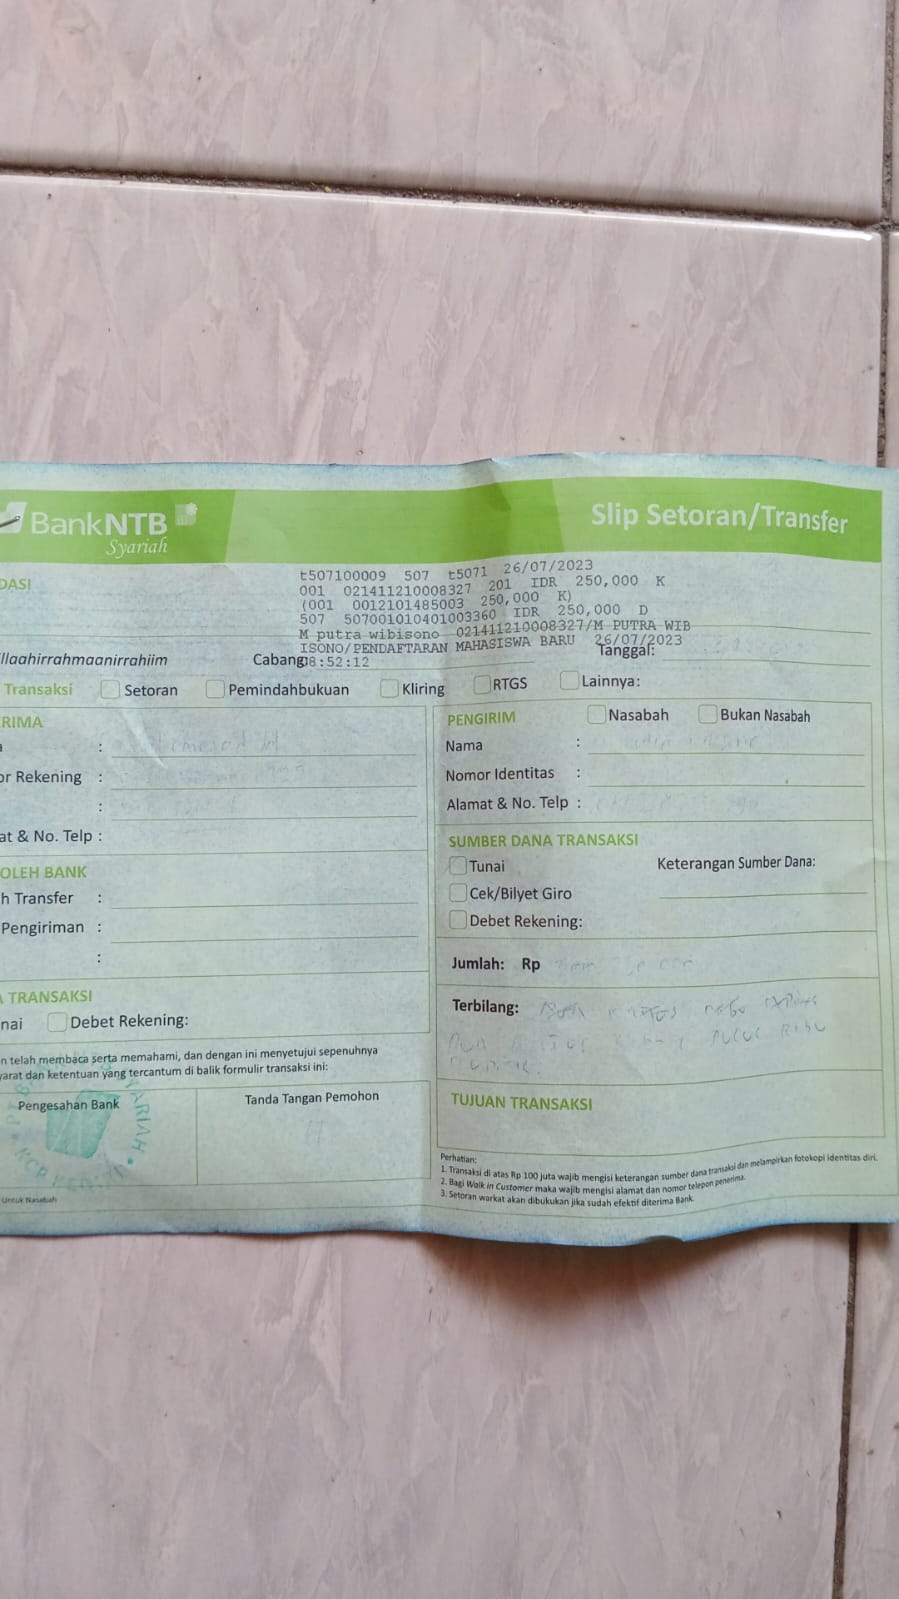 BankNTB
Syariah
Slip Setoran/Transfer
DASI
t507100009 507 t5071 26/07/2023
001 021411210008327 201 IDR 250,000 K
(001 0012101485003 250,000 K)
507 507001010401003360 IDR 250,000 D
M putra wibisono 021411210008327/M PUTRA WIB
ISONO/PENDAFTARAN MAHASISWA BARU 26/07/2023
08:52:12
llaahirrahmaanirrahiim
Cabang
Tanggal:
Transaksi Setoran Pemindahbukuan Kliring RTGS Lainnya:
RIMA
:
or Rekening :
:
at & No. Telp :
OLEH BANK
h Transfer :
Pengiriman :
:
TRANSAKSI
nai Debet Rekening:
n telah membaca serta memahami, dan dengan ini menyetujui sepenuhnya
yarat dan ketentuan yang tercantum di balik formulir transaksi ini:
Pengesahan Bank
Tanda Tangan Pemohon
Untuk Nasabah
PENGIRIM Nasabah Bukan Nasabah
Nama :
Nomor Identitas :
Alamat & No. Telp :
SUMBER DANA TRANSAKSI
Tunai Keterangan Sumber Dana:
Cek/Bilyet Giro
Debet Rekening:
Jumlah: Rp
Terbilang:
TUJUAN TRANSAKSI
Perhatian:
1. Transaksi di atas Rp 100 juta wajib mengisi keterangan sumber dana transaksi dan melampirkan fotokopi identitas diri.
2. Bagi Walk in Customer maka wajib mengisi alamat dan nomor telepon penerima.
3. Setoran warkat akan dibukukan jika sudah efektif diterima Bank.